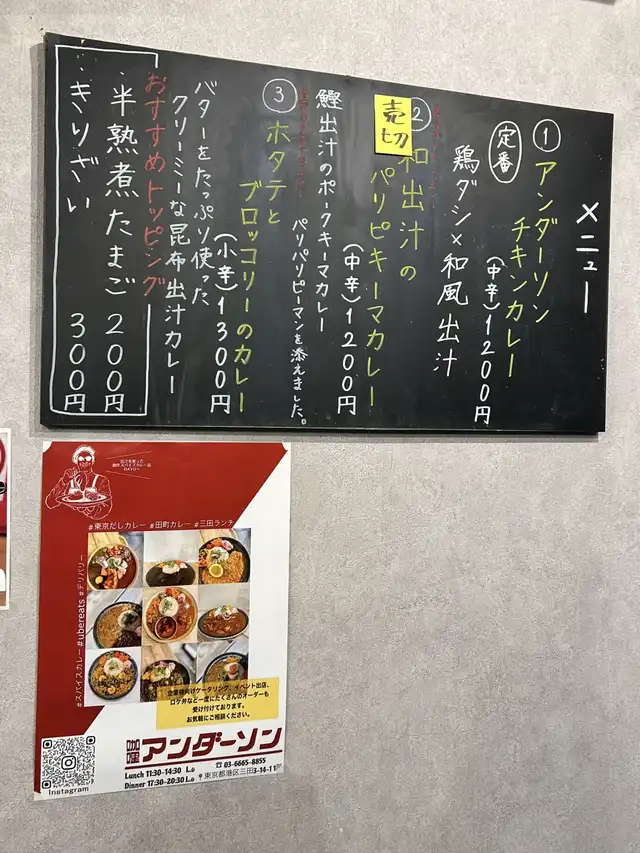 メニュー
① アンダーソン
チキンカレー
定番
(中辛)1200円
鶏ダシ×和風出汁
②和出汁の
パリピキーマカレー
売切
(中辛)1200円
鰹出汁のポークキーマカレー
パリパリピーマンを添えました。
③ホタテと
ブロッコリーのカレー
(小辛)1300円
バターをたっぷり使った
クリーミーな昆布出汁カレー
おすすめトッピング
・半熟煮たまご 200円
・きりざい 300円
#東京だしカレー #田町カレー #三田ランチ
#スパイスカレー #ubereats #デリバリー
企業様向けケータリング、イベント出店、
ロケ弁など一度にたくさんのオーダーも
受け付けております。
お気軽にご相談ください。
咖喱 アンダーソン
☎ 03-6665-8855
Lunch 11:30-14:30 L.o
Dinner 17:30-20:30 L.o
東京都港区三田3-14-11
Instagram